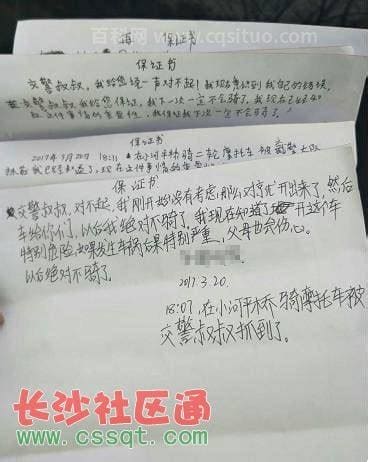 百科网 www.cqsituo.com
保证书
保证书
交警叔叔,我给您说一声对不起!我现在意识到我自己的错误,
交警叔叔,我给您保证,我下一次一定不会骑了,我现在已经知
这件事情的严重性,我保证我下次一定不会骑了。
保证书
2017年3月20日 18:11 在小河平桥骑二轮摩托车被
保证书
交警叔叔,对不起,我刚开始没有考虑那么对于忙开出来了,然后
车给你们,以后我绝对不骑了,我现在知道了开这个车
特别危险,如果发生车祸后果特别严重,父母也会伤心。
以后绝对不骑了。
2017.3.20.
18:07,在小河平桥骑摩托车被
交警叔叔抓到了。
长沙社区通
www.cssqt.com